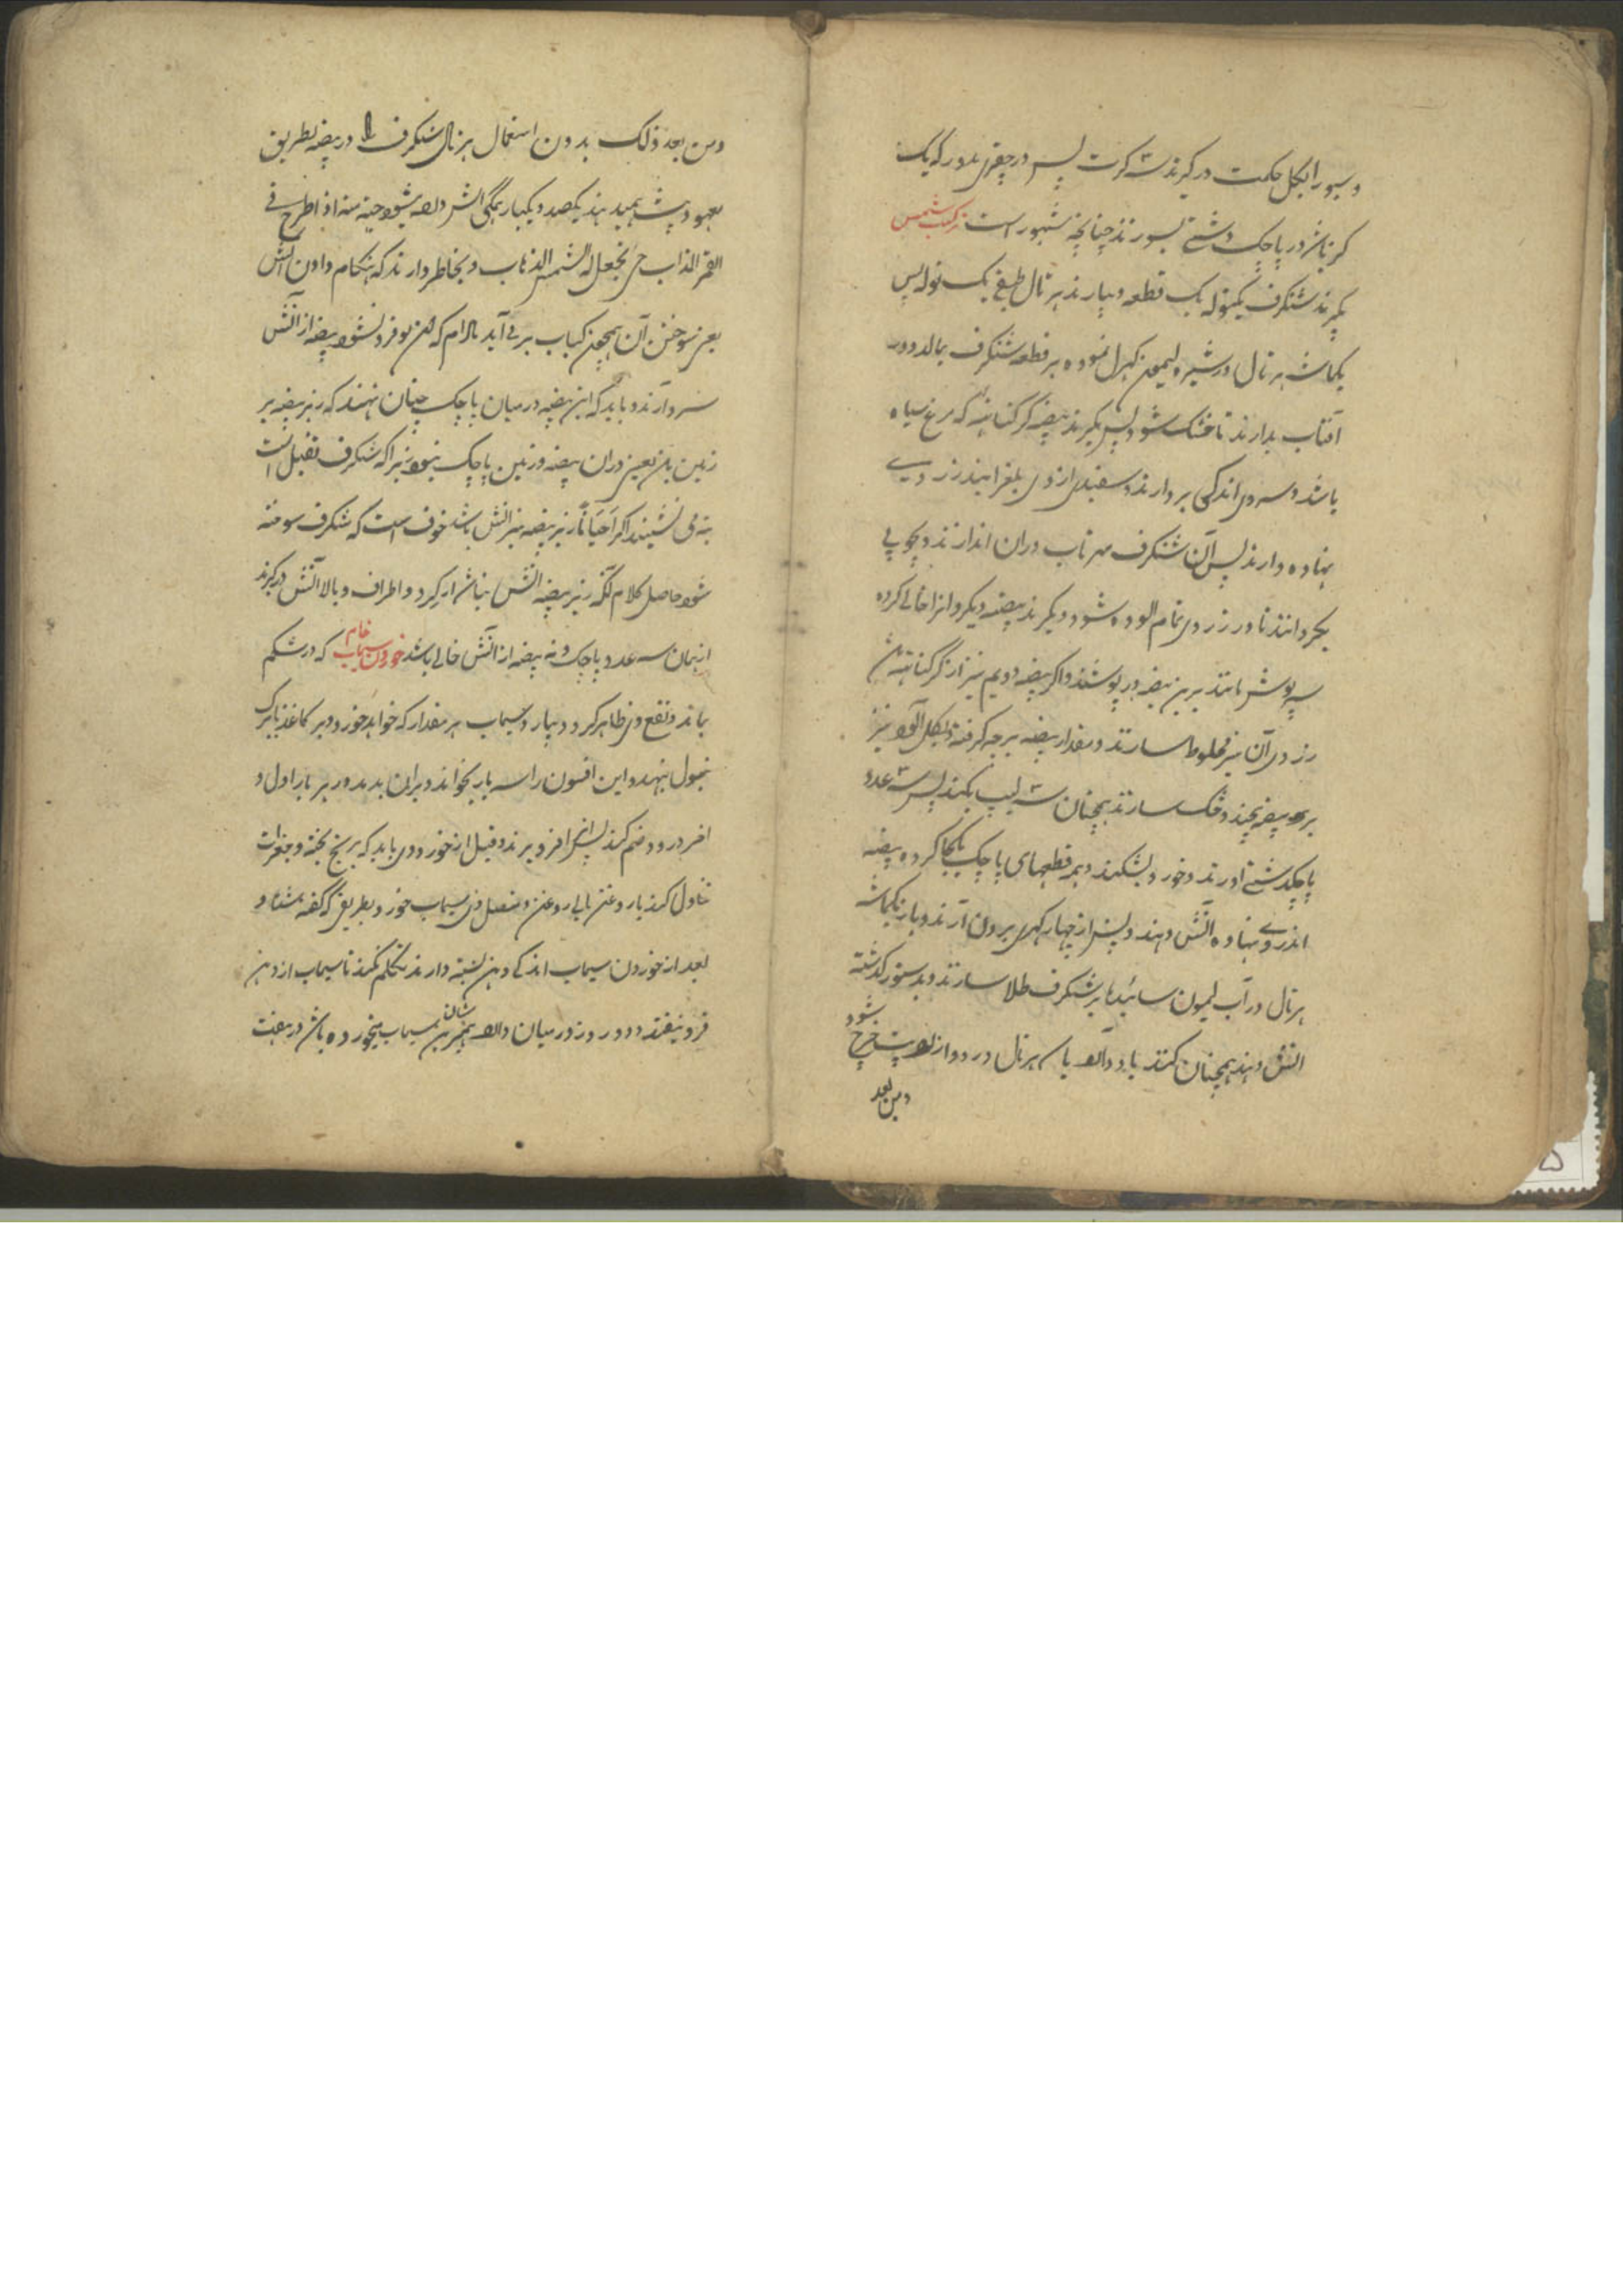 و سبو را بگل حکمت در گیرند سه کرت پس در چقری مدور که یک
گز باشد در پاچک دشتی بسوزند چنانچه مشهور است ترکیب شمس
بگیرند شنگرف یکتوله یک قطعه و بیارند هرتال طبقی یک توله پس
یکماشه هرتال در شیره لیمون کهرل نموده بر قطعه شنگرف بمالد و در
آفتاب بدارند تا خشک شود پس بگیرند بیضه کرکناتهه که مرغ سیاه
باشد و سر وی اندکی بردارند و سفیدی از وی بلغزانیدند زردی
نهاده دارند پس آن شنگرف هرتاب دران اندازند و بچوبی
بگردانند تا در زردی تمام الوده شود و دیگر بیضه دیگر و انرا خالی کرده
سرپوش مانند برین بیضه در پوشند و اگر بیضه دویم نیز از کرکناتهه باشد
زردی آن نیز مخلوط سازند و مقدار بیضه پرچه گرفته بگل آلوده نیز
بر بیضه پیچند و خشک سازند همچنان سه لیپ بکنند پس سه عدد
پاچکدشتی اورند و خورد بشکنند و همه قطعهای پاچک یکجا کرده بیضه
اندرو نهاده آتش دهند و پس از چهار گهری برون آرند و باز یکماشه
هرتال در آب لیمون سائیده بر شنگرف طلا سازند و بدستور گذشته
آتش دهند همچنان کنند تا دوازده ماشه هرتال در دوازده پت خرچ شود
و من بعد
و من بعد ذلک بدون استعمال هرتال شنگرف را در بیضه بطریق
معهود پت همیدهند یکصد و یکبار همگی آتش داده شود حبه منه اذا طرح فی
القمر الذاب حی یجعل له الشمس الذهاب و بخاطر دارند که هنگام دادن آتش
یعنی سوختن آن همچون کباب بر می آید مادام که این بو فرو نشود بیضه از آتش
سرد آرند و باید که این بیضه در میان پاچک چنان نهند که زیر بیضه بر
زمین باشد یعنی دران بیضه و زمین پاچک نبود زیرا که شنگرف ثقیل است
ته می نشیند اگر احیاناً زیر بیضه نیز آتش باشد خوف است که شنگرف سوخته
شود حاصل کلام آنکه زیر بیضه آتش نباشد از گرد و اطراف و بالا آتش در گیرند
از همان سه عدد پاچک و ته بیضه از آتش خالی باشد خوردن سیماب خام که در شکم
بماند و نفع وی ظاهر گردد بیارد سیماب هر مقدار که خواهد خورد و بر کاغذ یا برگ
تنبول بنهد و این افسون را سه بار بخواند و بران بدمد و در هر بار اول و
اخر درود ضم کند پس انرا فرو برند و قبل از خوردن وی باید که برنج پخته و جغرات
تناول کند با روغن یا بی روغن و متصل وی سیماب خورد بطریق که گفته شد و
بعد از خوردن سیماب اندکی دهن بسته دارند تکلم نکنند تا سیماب از دهن
فرو نیفتد و در روز در میان داده همبرین شان سیماب میخورده باشد در هفت